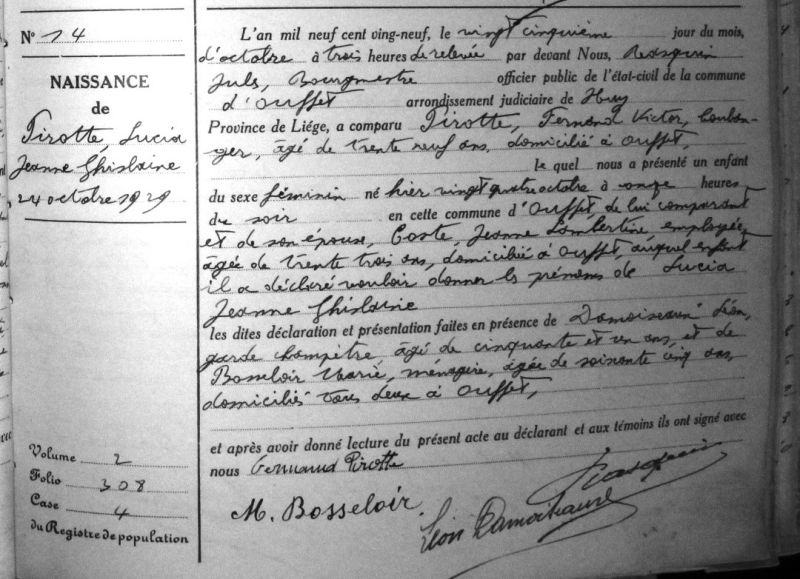 N° 14
NAISSANCE
de
Pirotte, Lucia
Jeanne Ghislaine
24 octobre 1929
Volume 2
Folio 308
Case 4
du Registre de population
L'an mil neuf cent ving-neuf, le vingt cinquième jour du mois,
d'octobre à trois heures de relevée par devant Nous,
Juls, Bourgmestre officier public de l'état-civil de la commune
d'Ouffet arrondissement judiciaire de Huy
Province de Liége, a comparu Pirotte, Fernand Victor, boulan-
ger, âgé de trente neuf ans, domicilié à Ouffet,
le quel nous a présenté un enfant
du sexe féminin né hier vingt quatre octobre à onze heures
du soir en cette commune d'Ouffet, de lui comparant
et de son épouse, Coste, Jeanne Lambertine, employée,
âgée de trente trois ans, domiciliée à Ouffet, auquel enfant
il a déclaré vouloir donner les prénoms de Lucia
Jeanne Ghislaine
les dites déclaration et présentation faites en présence de Damoiseaux Léon,
garde champêtre, âgé de cinquante et un ans, et de
Bosseloir Marie, ménagère, âgée de soixante cinq ans,
domiciliés tous deux à Ouffet,
et après avoir donné lecture du présent acte au déclarant et aux témoins ils ont signé avec
nous Fernand Pirotte
M. Bosseloir.
Léon Damoiseaux